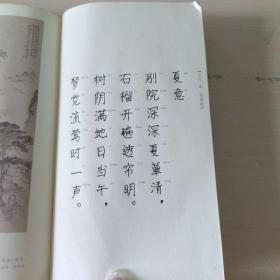 夏意
别院深深夏簟清，
石榴开遍透帘明。
树阴满地日当午，
梦觉流莺时一声。